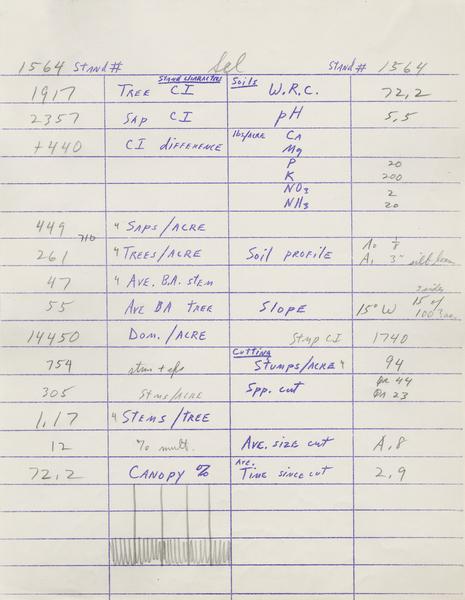 1564 Stand # Sel Stand # 1564
Stand characters Soils
1917 Tree CI W.R.C. 72,2
2357 Sap CI pH 5,5
+440 CI difference lbs/acre Ca
Mg
P 20
K 200
NO3 2
NH3 20
449 " Saps/acre
710
261 " Trees/acre Soil profile A0 1/8
A1 3"
47 " Ave. B.A. stem
55 Ave BA tree Slope 15° W 15 of
14450 Dom./acre Stmp CI 1740
Cutting
754 stms + sps Stumps/acre " 94
305 Stms/acre Spp. cut 44
23
1,17 " Stems/tree
12 % mult. Ave. size cut A,8
72,2 Canopy % Ave. Time since cut 2,9